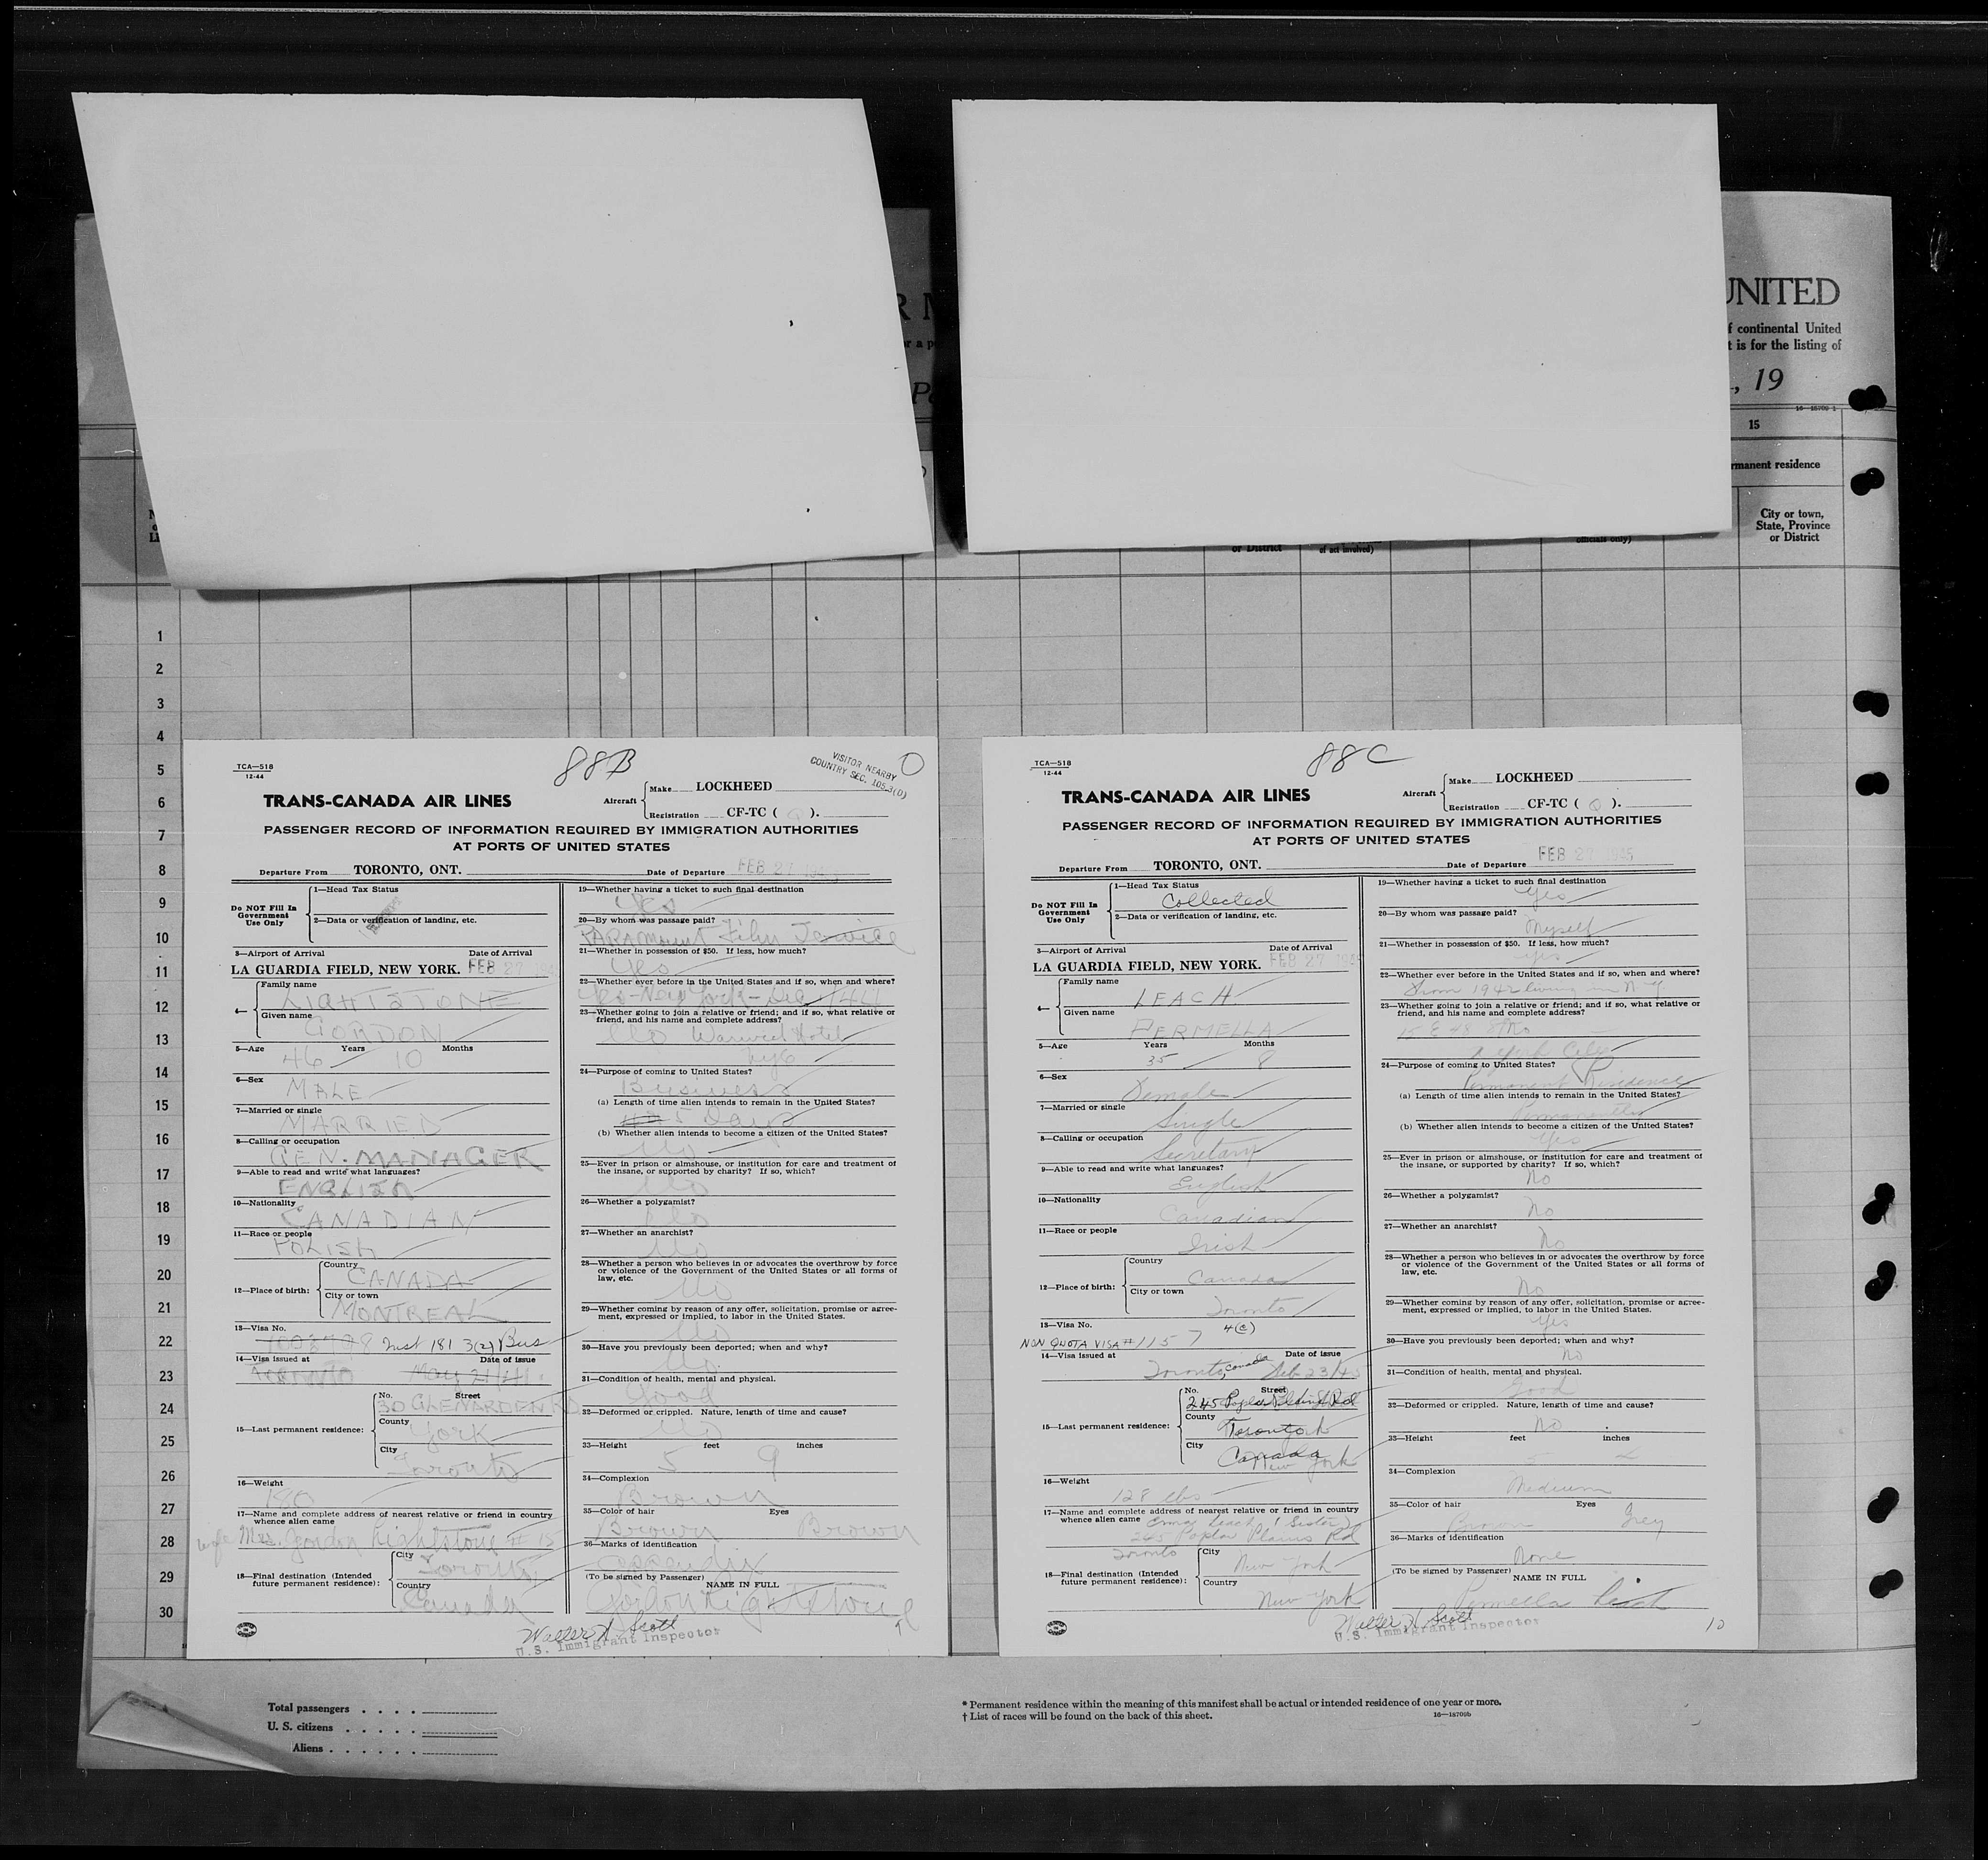 UNITED
f continental United
t is for the listing of
, 19
16—18709-1
15
rmanent residence
City or town,
State, Province
or District
or District
of act involved)
officials only)
1
2
3
4
5
6
7
8
9
10
11
12
13
14
15
16
17
18
19
20
21
22
23
24
25
26
27
28
29
30
88B
VISITOR NEARBY
COUNTRY SEC. 105.3(D)
TCA—518
12-44
TRANS-CANADA AIR LINES
Aircraft
Make LOCKHEED
Registration CF-TC ( Q ).
PASSENGER RECORD OF INFORMATION REQUIRED BY IMMIGRATION AUTHORITIES
AT PORTS OF UNITED STATES
Departure From TORONTO, ONT. Date of Departure FEB 27 1945
Do NOT Fill In
Government
Use Only
1—Head Tax Status
2—Data or verification of landing, etc.
3—Airport of Arrival Date of Arrival
LA GUARDIA FIELD, NEW YORK. FEB 27 194
4— Family name
LIGHTSTONE
Given name
GORDON
5—Age Years Months
46 10
6—Sex
MALE
7—Married or single
MARRIED
8—Calling or occupation
GEN. MANAGER
9—Able to read and write what languages?
ENGLISH
10—Nationality
CANADIAN
11—Race or people
POLISH
12—Place of birth:
Country
CANADA
City or town
MONTREAL
13—Visa No.
181 3(2) Bus
14—Visa issued at Date of issue
Toronto May 21/41
15—Last permanent residence:
No. Street
30 GLENARDEN RD
County
York
City
Toronto
16—Weight
180
17—Name and complete address of nearest relative or friend in country
whence alien came
wife Mrs. Gordon Lightstone # 15
18—Final destination (Intended
future permanent residence):
City
Toronto
Country
Canada
19—Whether having a ticket to such final destination
Yes
20—By whom was passage paid?
PARAMOUNT Film Service
21—Whether in possession of $50. If less, how much?
Yes
22—Whether ever before in the United States and if so, when and where?
Yes - New York - Dec /44
23—Whether going to join a relative or friend; and if so, what relative or
friend, and his name and complete address?
No Warwick Hotel
NYC
24—Purpose of coming to United States?
Business
(a) Length of time alien intends to remain in the United States?
5 Days
(b) Whether alien intends to become a citizen of the United States?
No
25—Ever in prison or almshouse, or institution for care and treatment of
the insane, or supported by charity? If so, which?
No
26—Whether a polygamist?
No
27—Whether an anarchist?
No
28—Whether a person who believes in or advocates the overthrow by force
or violence of the Government of the United States or all forms of
law, etc.
No
29—Whether coming by reason of any offer, solicitation, promise or agree-
ment, expressed or implied, to labor in the United States.
No
30—Have you previously been deported; when and why?
No
31—Condition of health, mental and physical.
Good
32—Deformed or crippled. Nature, length of time and cause?
No
33—Height feet inches
5 9
34—Complexion
Brown
35—Color of hair Eyes
Brown Brown
36—Marks of identification
Appendix
(To be signed by Passenger)
NAME IN FULL
Gordon Lightstone
Walter N. Scott
U.S. Immigrant Inspector
9
88C
TCA—518
12-44
TRANS-CANADA AIR LINES
Aircraft
Make LOCKHEED
Registration CF-TC ( Q ).
PASSENGER RECORD OF INFORMATION REQUIRED BY IMMIGRATION AUTHORITIES
AT PORTS OF UNITED STATES
Departure From TORONTO, ONT. Date of Departure FEB 27 1945
Do NOT Fill In
Government
Use Only
1—Head Tax Status
Collected
2—Data or verification of landing, etc.
3—Airport of Arrival Date of Arrival
LA GUARDIA FIELD, NEW YORK. FEB 27 1945
4— Family name
LEACH
Given name
PERMELLA
5—Age Years Months
35 8
6—Sex
Female
7—Married or single
Single
8—Calling or occupation
Secretary
9—Able to read and write what languages?
English
10—Nationality
Canadian
11—Race or people
Irish
12—Place of birth:
Country
Canada
City or town
Toronto
13—Visa No. 4(c)
NON QUOTA VISA # 1157
14—Visa issued at Date of issue
Toronto, Canada Feb 23/45
15—Last permanent residence:
No. Street
245 Poplar Plains Rd
County
Toronto
City
Canada
New York
16—Weight
128 lbs
17—Name and complete address of nearest relative or friend in country
whence alien came Erma Leach (Sister)
245 Poplar Plains Rd
Toronto
18—Final destination (Intended
future permanent residence):
City
New York
Country
New York
19—Whether having a ticket to such final destination
Yes
20—By whom was passage paid?
Myself
21—Whether in possession of $50. If less, how much?
Yes
22—Whether ever before in the United States and if so, when and where?
From 1942 living in N.Y
23—Whether going to join a relative or friend; and if so, what relative or
friend, and his name and complete address?
15 E 48 St No
N York City
24—Purpose of coming to United States?
Permanent Residence
(a) Length of time alien intends to remain in the United States?
Permanently
(b) Whether alien intends to become a citizen of the United States?
Yes
25—Ever in prison or almshouse, or institution for care and treatment of
the insane, or supported by charity? If so, which?
No
26—Whether a polygamist?
No
27—Whether an anarchist?
No
28—Whether a person who believes in or advocates the overthrow by force
or violence of the Government of the United States or all forms of
law, etc.
No
29—Whether coming by reason of any offer, solicitation, promise or agree-
ment, expressed or implied, to labor in the United States.
Yes
30—Have you previously been deported; when and why?
No
31—Condition of health, mental and physical.
Good
32—Deformed or crippled. Nature, length of time and cause?
No
33—Height feet inches
5 2
34—Complexion
Medium
35—Color of hair Eyes
Brown Grey
36—Marks of identification
None
(To be signed by Passenger)
NAME IN FULL
Permella Leach
Walter N. Scott
U.S. Immigrant Inspector
10
Total passengers . . . .
U. S. citizens . . . . .
Aliens . . . . . .
* Permanent residence within the meaning of this manifest shall be actual or intended residence of one year or more.
† List of races will be found on the back of this sheet.
16—18709b